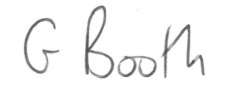 G Booth